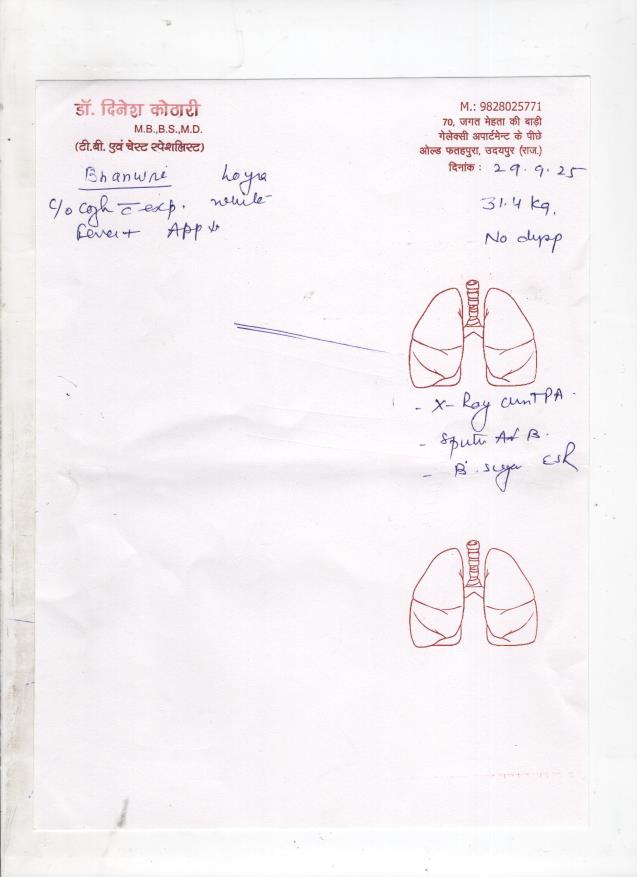 डॉ. दिनेश कोठारी
M.B.,B.S.,M.D.
(टी.बी. एवं चेस्ट स्पेशलिस्ट)
M.: 9828025771
70, जगत मेहता की बाड़ी
गेलेक्सी अपार्टमेन्ट के पीछे
ओल्ड फतहपुरा, उदयपुर (राज.)
दिनांक : 29.9.25
Bhanwri
c/o cogh c̄ exp. white
Fever+ App ↓
31.4 kg.
No
- X-Ray PA.
- Sputm B.
- B. ESR